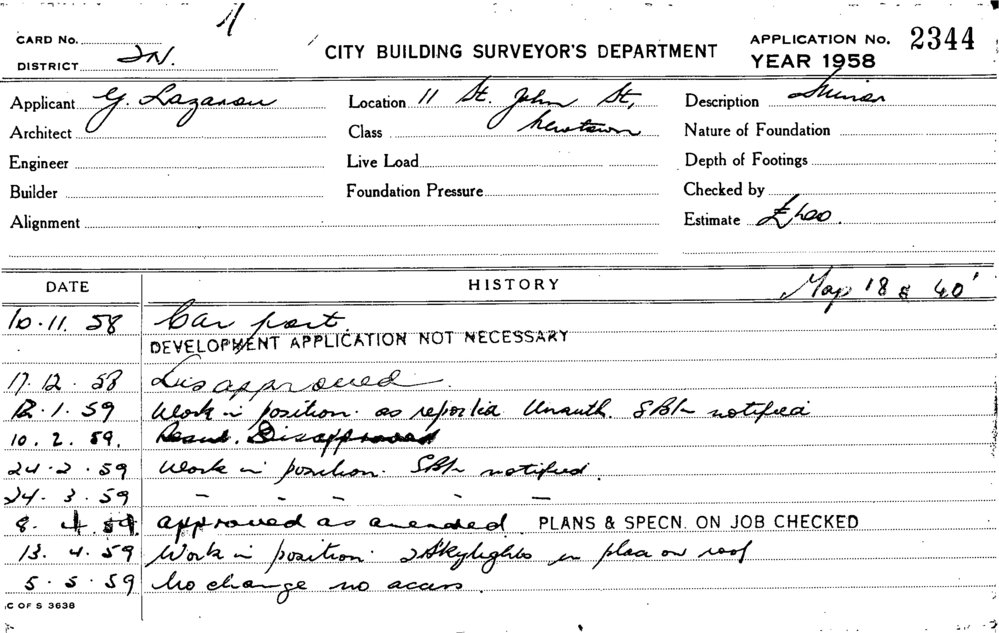 CARD No.
DISTRICT 2N.
CITY BUILDING SURVEYOR'S DEPARTMENT
APPLICATION No. 2344
YEAR 1958
Applicant G. Lazarou
Location 11 St. John St, Newtown
Description Minor
Architect
Class
Nature of Foundation
Engineer
Live Load
Depth of Footings
Builder
Foundation Pressure
Checked by
Alignment
Estimate £
DATE HISTORY Map 18 40'
10.11.58 Car port.
DEVELOPMENT APPLICATION NOT NECESSARY
17.12.58 Disapproved.
12.1.59 Work in position. as reported Unauth. notified
10.2.59. Disapproved
24.2.59 Work in position. notified.
24.3.59 - - - - -
8.4.59 approved as amended. PLANS & SPECN. ON JOB CHECKED
13.4.59 Work in position. 2 Skylights in place on roof
5.5.59 No change no access.
C OF S 3638